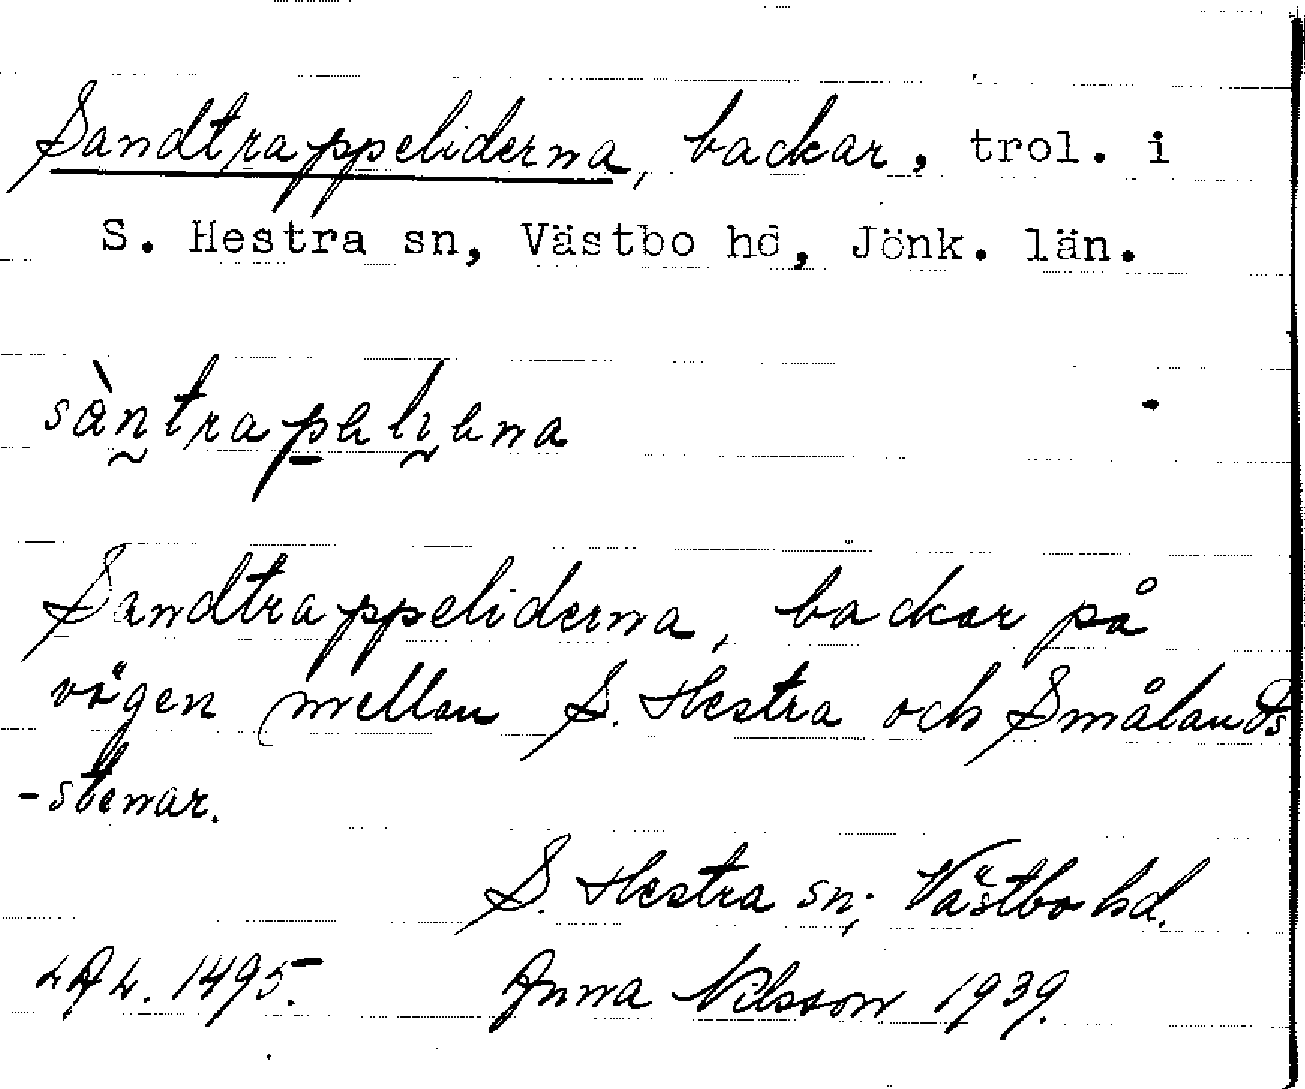 Sandtrappeliderna, backar, trol. i
S. Hestra sn, Västbo hd, Jönk. län.
sàntrapeliena
Sandtrappeliderna, backar på
vägen mellan S. Hestra och Smålands
-stenar.
S. Hestra sn; Västbo hd.
LAL. 1495. Anna Nilsson 1939.